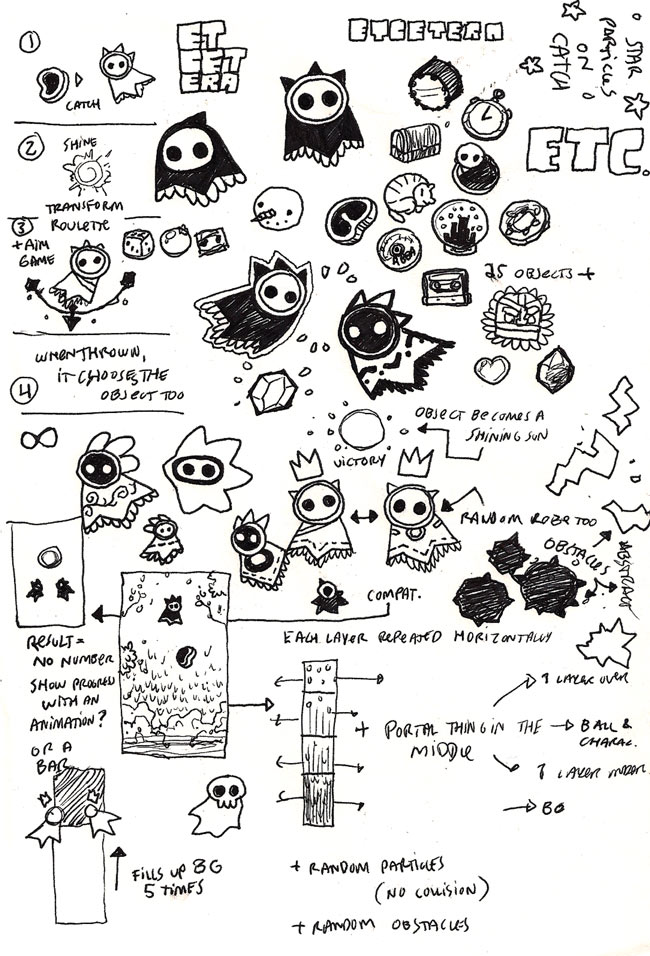 1
CATCH
ET
CET
ERA
ETCETERA
STAR
PARTICLES
ON
CATCH
ETC.
2
SHINE
TRANSFORM
3
ROULETTE
+ AIM
GAME
25 OBJECTS +
WHEN THROWN,
IT CHOOSES THE
OBJECT TOO
4
OBJECT BECOMES A
SHINING SUN
VICTORY
RANDOM ROBE TOO
OBSTACLES
ABSTRACT
COMPAT.
RESULT =
NO NUMBER
SHOW PROGRESS
WITH AN
ANIMATION?
OR A
BAR
EACH LAYER REPEATED HORIZONTALLY
+ PORTAL THING IN THE
MIDDLE
1 LAYER OVER
BALL &
CHARAC.
1 LAYER UNDER
BG
FILLS UP BG
5 TIMES
+ RANDOM PARTICLES
(NO COLLISION)
+ RANDOM OBSTACLES